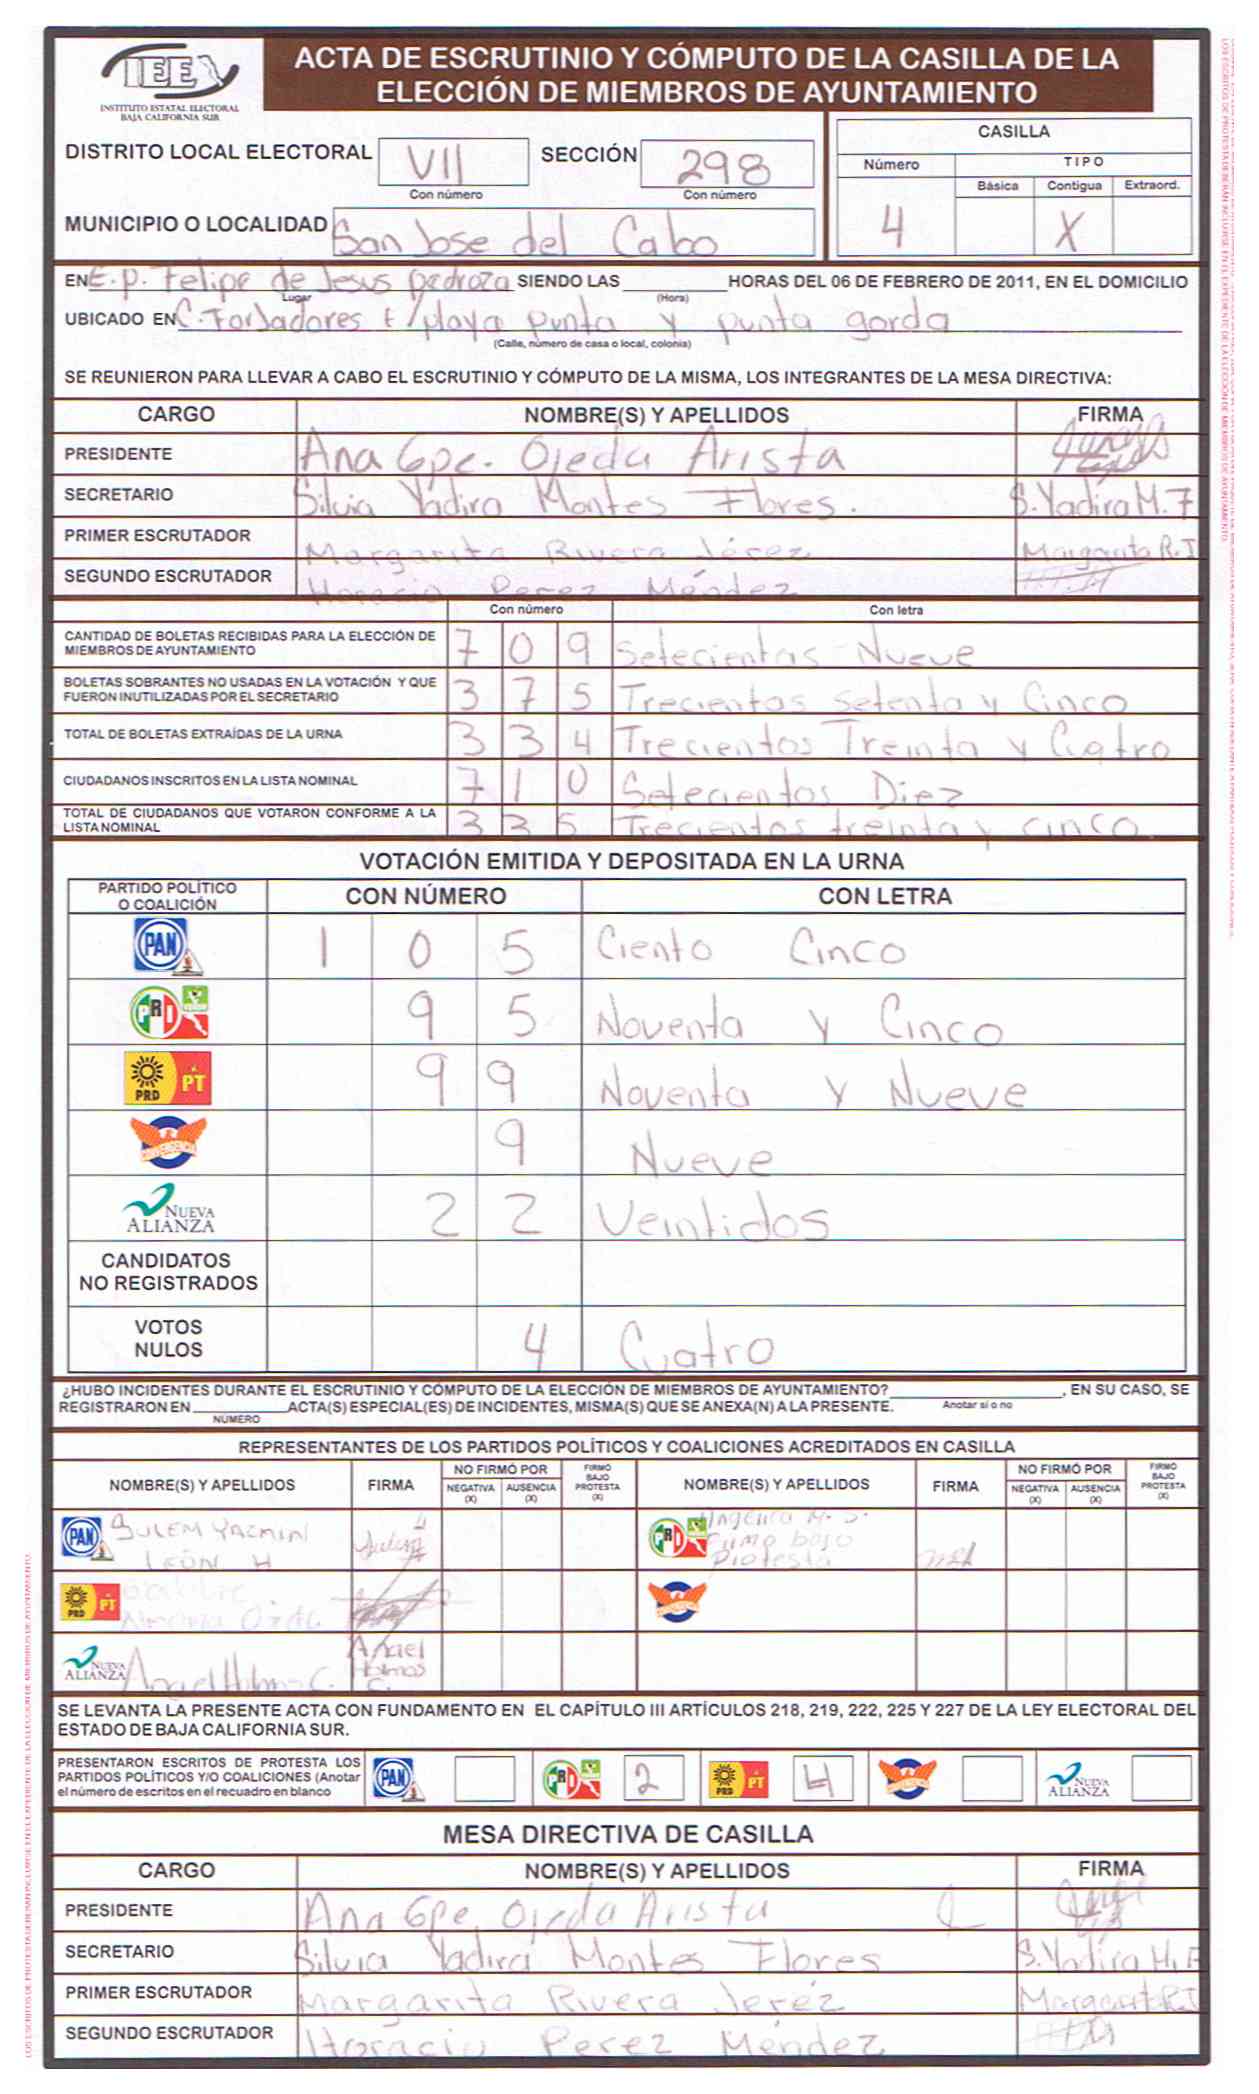 IEE
INSTITUTO ESTATAL ELECTORAL
BAJA CALIFORNIA SUR
ACTA DE ESCRUTINIO Y CÓMPUTO DE LA CASILLA DE LA
ELECCIÓN DE MIEMBROS DE AYUNTAMIENTO
DISTRITO LOCAL ELECTORAL VII SECCIÓN 298
Con número Con número
MUNICIPIO O LOCALIDAD San Jose del Cabo
CASILLA
Número TIPO
Básica Contigua Extraord.
4 X
EN E.p. Felipe de Jesus pedroza SIENDO LAS HORAS DEL 06 DE FEBRERO DE 2011, EN EL DOMICILIO
Lugar (Hora)
UBICADO EN C. Forjadores E/playa punta y punta gorda
(Calle, número de casa o local, colonia)
SE REUNIERON PARA LLEVAR A CABO EL ESCRUTINIO Y CÓMPUTO DE LA MISMA, LOS INTEGRANTES DE LA MESA DIRECTIVA:
CARGO NOMBRE(S) Y APELLIDOS FIRMA
PRESIDENTE Ana Gpe. Ojeda Arista
SECRETARIO Silvia Yadira Montes Flores. S. Yadira M. F
PRIMER ESCRUTADOR Margarita Rivera Jérez Margarita R.J
SEGUNDO ESCRUTADOR Horacio Perez Méndez
Con número Con letra
CANTIDAD DE BOLETAS RECIBIDAS PARA LA ELECCIÓN DE
MIEMBROS DE AYUNTAMIENTO 7 0 9 Setecientas Nueve
BOLETAS SOBRANTES NO USADAS EN LA VOTACIÓN Y QUE
FUERON INUTILIZADAS POR EL SECRETARIO 3 7 5 Trecientos Setenta y Cinco
TOTAL DE BOLETAS EXTRAÍDAS DE LA URNA 3 3 4 Trecientos Treinta y Cuatro
CIUDADANOS INSCRITOS EN LA LISTA NOMINAL 7 1 0 Setecientos Diez
TOTAL DE CIUDADANOS QUE VOTARON CONFORME A LA
LISTA NOMINAL 3 3 5 Trecientos treinta y cinco
VOTACIÓN EMITIDA Y DEPOSITADA EN LA URNA
PARTIDO POLÍTICO
O COALICIÓN CON NÚMERO CON LETRA
PAN 1 0 5 Ciento Cinco
PRI 9 5 Noventa y Cinco
PRD PT 9 9 Noventa y Nueve
CONVERGENCIA 9 Nueve
NUEVA
ALIANZA 2 2 Veintidos
CANDIDATOS
NO REGISTRADOS
VOTOS
NULOS 4 Cuatro
¿HUBO INCIDENTES DURANTE EL ESCRUTINIO Y CÓMPUTO DE LA ELECCIÓN DE MIEMBROS DE AYUNTAMIENTO? , EN SU CASO, SE
REGISTRARON EN ACTA(S) ESPECIAL(ES) DE INCIDENTES, MISMA(S) QUE SE ANEXA(N) A LA PRESENTE. Anotar sí o no
NÚMERO
REPRESENTANTES DE LOS PARTIDOS POLÍTICOS Y COALICIONES ACREDITADOS EN CASILLA
NOMBRE(S) Y APELLIDOS FIRMA NO FIRMÓ POR NEGATIVA (X) AUSENCIA (X) FIRMÓ BAJO PROTESTA (X) NOMBRE(S) Y APELLIDOS FIRMA NO FIRMÓ POR NEGATIVA (X) AUSENCIA (X) FIRMÓ BAJO PROTESTA (X)
PAN Sulem Yazmin
León H
PRI Angelica M. S.
Firmo bajo
Protesta
PRD PT
NUEVA
ALIANZA Angel Holmos C. Angel
Holmos
C.
SE LEVANTA LA PRESENTE ACTA CON FUNDAMENTO EN EL CAPÍTULO III ARTÍCULOS 218, 219, 222, 225 Y 227 DE LA LEY ELECTORAL DEL
ESTADO DE BAJA CALIFORNIA SUR.
PRESENTARON ESCRITOS DE PROTESTA LOS
PARTIDOS POLÍTICOS Y/O COALICIONES (Anotar
el número de escritos en el recuadro en blanco
PAN PRI 2 PRD PT 4 NUEVA ALIANZA
MESA DIRECTIVA DE CASILLA
CARGO NOMBRE(S) Y APELLIDOS FIRMA
PRESIDENTE Ana Gpe. Ojeda Arista
SECRETARIO Silvia Yadira Montes Flores S. Yadira M. F
PRIMER ESCRUTADOR Margarita Rivera Jeréz Margarita R.J
SEGUNDO ESCRUTADOR Horacio Perez Méndez